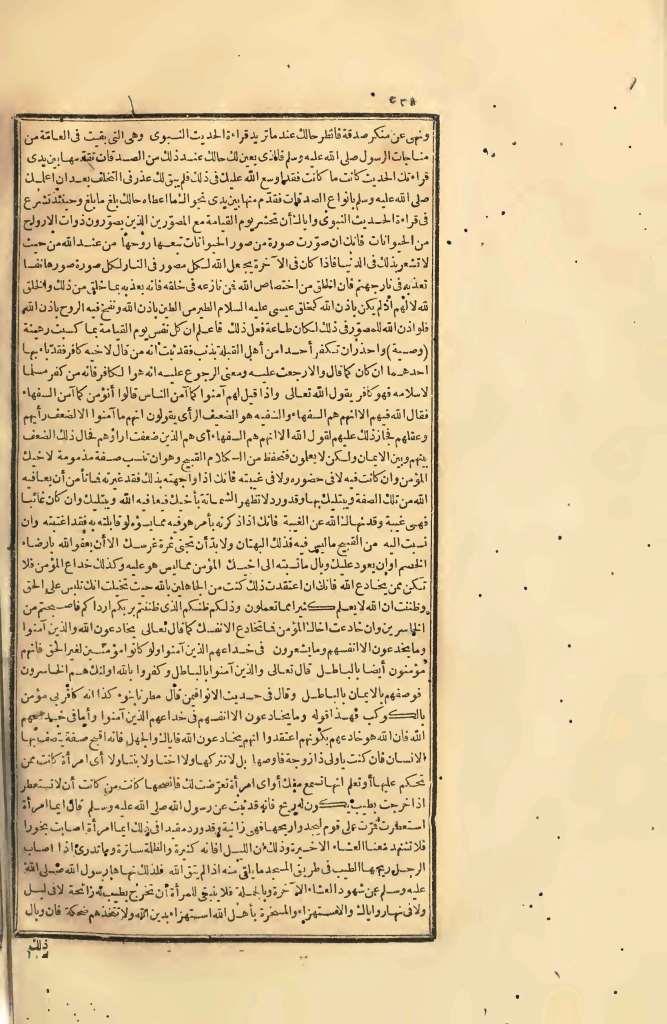 ٤٣٨
ونهى عن منكر صدقة فانظر حالك عندما تريد قراءة الحديث النبوى وهى التى بقيت فى العامة من
مناجاة الرسول صلى الله عليه وسلم فالذى يعين لك حالك عند ذلك من الصدقات تقدمها بين يدى
قراءتك الحديث كانت ما كانت فقد أوسع الله عليك فى ذلك فلم يبق لك عذر فى التخلف بعد ان اعلمك
صلى الله عليه وسلم بأنواع الصدقات فقدّم منها بين يدى نجواك ما اعطاه حالك بلغ ما بلغ وحينئذ تشرع
فى قراءة الحديث النبوى واياك أن تحشر يوم القيامة مع المصوّرين الذين يصوّرون ذوات الارواح
من الحيوانات فانك ان صوّرت صورة من صور الحيوانات تبعها روحها من عند الله من حيث
لا تشعر بذلك فى الدنيا فاذا كان فى الآخرة يجعل الله لكل مصور فى النار لكل صورة صورها نفسا
تعذبه فى نار جهنم فان الخلق من اختصاص الله فمن نازعه فى خلقه فانه يعذبه بما خلق من ذلك والخلق
لله لا لهم اذ لم يكن باذن الله كخلق عيسى عليه السلام الطير من الطين باذن الله ونفخ فيه الروح باذن الله
فلو اذن الله للمصوّر فى ذلك لكان طاعة فعل ذلك فاعلم ان كل نفس يوم القيامة بما كسبت رهينة
(وصية) واحذر ان تكفر أحدا من أهل القبلة بذنب فقد ثبت انه من قال لاخيه كافر فقد باء بها
احدهما ان كان كما قال والا رجعت عليه ومعنى الرجوع عليه انه هو الكافر فانه من كفر مسلما
لاسلامه فهو كافر يقول الله تعالى واذا قيل لهم آمنوا كما آمن الناس قالوا أنؤمن كما آمن السفهاء
فقال الله فيهم الا انهم هم السفهاء والسفيه هو الضعيف الرأى يقولون انهم ما آمنوا الا لضعف رأيهم
وعقلهم فجاز ذلك عليهم لقول الله الا انهم هم السفهاء أى هم الذين ضعفت اراؤهم فحال ذلك الضعف
بينهم وبين الايمان ولكن لا يعلمون فتحفظ من الكلام القبيح وهو ان تنسب صفة مذمومة لاخيك
المؤمن وان كانت فيه لا فى حضوره ولا فى غيبته فانك اذا واجهته بذلك فقد عيرته فما تأمن أن يعافيه
الله من تلك الصفة ويبتليك بها وقد ورد لا تظهر الشماتة بأخيك فيعافيه الله ويبتليك وان كان غائبا
فهى غيبة وقد نهاك الله عن الغيبة فانك اذا ذكرته بأمر هو فيه مما يسوءه لو قابلته به فقد اغتبته وان
نسبت اليه من القبيح ما ليس فيه فذلك البهتان ولا بدّ أن تجنى ثمرة غرسك الا أن يعفو الله بارضاء
الخصم او ان يعود عليك وبال ما نسبته الى اخيك المؤمن مما ليس هو عليه وكذلك خداع المؤمن فلا
تكن ممن يخادع الله فانك ان اعتقدت ذلك كنت من الجاهلين بالله حيث تخيلت انك تلبس على الحق
وظننت ان الله لا يعلم كثيرا مما تعملون وذلكم ظنكم الذى ظننتم بربكم ارداكم فاصبحتم من
الخاسرين وان خادعت اخاك المؤمن فما تخادع الا نفسك كما قال تعالى يخادعون الله والذين آمنوا
وما يخدعون الا انفسهم وما يشعرون فى خداعهم الذين آمنوا ولو كانوا مؤمنين لغير الحق فانهم
مؤمنون أيضا بالباطل قال تعالى والذين آمنوا بالباطل وكفروا بالله اولئك هم الخاسرون
فوصفهم بالايمان بالباطل وقال فى حديث الانواء فيمن قال مطرنا بنوء كذا انه كافر بى مؤمن
بالكوكب فهذا قوله وما يخادعون الا انفسهم فى خداعهم الذين آمنوا وأما فى خدعهم
الله فان الله هو خادعهم بكونهم اعتقدوا انهم يخادعون الله فاياك والجهل فانه اقبح صفة يتصف بها
الانسان فان كنت يا ولى ذا زوجة فاوصها بل لا تتركها ولا اختا ولا بنتا ولا أى امرأة كانت ممن
تحكم عليها أو تعلم انها تسمع منك أو اى امرأة تعرّضت لك فانصحها كانت من كانت أن لا تستعطر
اذا خرجت بطيب يكون له ريح فانه قد ثبت عن رسول الله صلى الله عليه وسلم قال ايما امرأة
استعطرت فمرّت على قوم ليجدوا ريحها فهى زانية وقد ورد مقيدا فى ذلك ايما امرأة اصابت بخورا
فلا تشهد معنا العشاء الاخيرة وذلك ان الليل آفاته كثيرة والظلمة ساترة وما تدرى اذا اصاب
الرجل ريحها الطيب فى طريق المسجد ما يلقى منه اذا لم يتق الله فلذلك نهاها رسول الله صلى الله
عليه وسلم عن شهود العشاء الآخرة وبالجملة فلا ينبغى للمرأة أن تخرج بطيب له رائحة لا فى ليل
ولا فى نهار واياك والاستهزاء والمسخرة بأهل الله استهزاء بدين الله ولا تتخذهم ضحكة فان وبال
ذلك